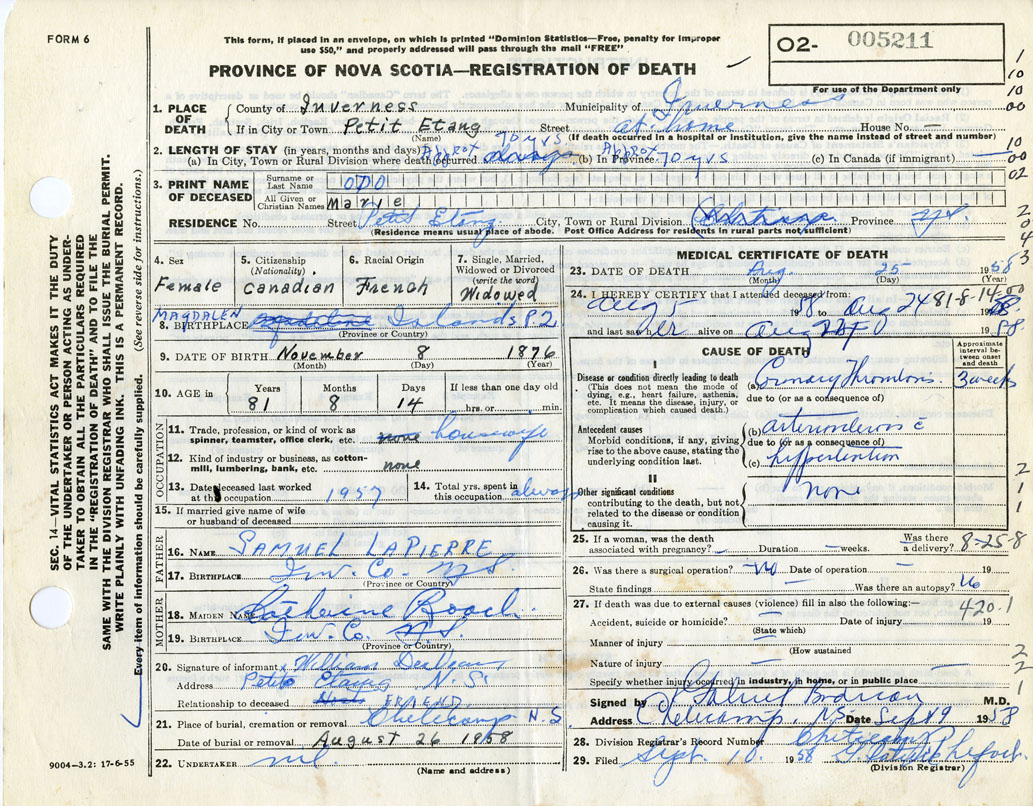 FORM 6
This form, if placed in an envelope, on which is printed "Dominion Statistics—Free, penalty for improper
use $50," and properly addressed will pass through the mail "FREE"
PROVINCE OF NOVA SCOTIA—REGISTRATION OF DEATH
O2- 005211
For use of the Department only
1. PLACE OF DEATH
County of Inverness Municipality of Inverness
If in City or Town Petit Etang Street at home House No. —
(Name) (If death occurred in a hospital or Institution, give the name instead of street and number)
2. LENGTH OF STAY (in years, months and days) Approx 70 yrs Approx
(a) In City, Town or Rural Division where death occurred always (b) In Province 70 yrs (c) In Canada (if immigrant) —
3. PRINT NAME OF DECEASED
Surname or Last Name ODO
All Given or Christian Names Marie
RESIDENCE No. Street Petit Etang City, Town or Rural Division Province N.S.
(Residence means usual place of abode. Post Office Address for residents in rural parts not sufficient)
4. Sex Female
5. Citizenship (Nationality) Canadian
6. Racial Origin French
7. Single, Married, Widowed or Divorced (write the word) Widowed
MAGDALEN
8. BIRTHPLACE Islands P.Q.
(Province or Country)
9. DATE OF BIRTH November 8 1876
(Month) (Day) (Year)
10. AGE in
Years Months Days If less than one day old
81 8 14 hrs. or min.
OCCUPATION
11. Trade, profession or kind of work as
spinner, teamster, office clerk, etc. none housewife
12. Kind of industry or business, as cotton-
mill, lumbering, bank, etc. none
13. Date deceased last worked
at this occupation 1957
14. Total yrs. spent in
this occupation always
15. If married give name of wife
or husband of deceased
FATHER
16. NAME SAMUEL LAPIERRE
17. BIRTHPLACE Inv. Co. N.S.
(Province or Country)
MOTHER
18. MAIDEN NAME Catherine Roach
19. BIRTHPLACE Inv. Co. N.S.
(Province or Country)
20. Signature of informant William
Address Petit Etang N.S.
Relationship to deceased FRIEND
21. Place of burial, cremation or removal Cheticamp N.S
Date of burial or removal August 26 1858
22. UNDERTAKER nil
(Name and address)
9004—3.2: 17-6-55
MEDICAL CERTIFICATE OF DEATH
23. DATE OF DEATH Aug. 25 1958
(Month) (Day) (Year)
24. I HEREBY CERTIFY that I attended deceased from:
Aug 5 1958 to Aug 24 81-8-14-00
and last saw her alive on Aug 24 1958
CAUSE OF DEATH
Approximate interval between onset and death
I
Disease or condition directly leading to death
(This does not mean the mode of
dying, e.g., heart failure, asthenia,
etc. It means the disease, injury, or
complication which caused death.)
(a) Coronary Thrombosis. 3 weeks
due to (or as a consequence of)
Antecedent causes
Morbid conditions, if any, giving
rise to the above cause, stating the
underlying condition last.
(b) arteriosclerosis c
due to (or as a consequence of)
(c) hypertention
II
Other significant conditions
contributing to the death, but not
related to the disease or condition
causing it.
none
25. If a woman, was the death
associated with pregnancy? — Duration — weeks. Was there
a delivery? 8-25-8
26. Was there a surgical operation? No Date of operation — 19
State findings — Was there an autopsy? No
27. If death was due to external causes (violence) fill in also the following:—
420.1
Accident, suicide or homicide? — Date of injury 19
(State which)
Manner of injury —
(How sustained
Nature of injury —
Specify whether injury occurred in industry, in home, or in public place —
Signed by M.D.
Address Cheticamp, N.S. Date Sept 9 1958
28. Division Registrar's Record Number
29. Filed Sept. 10. 1958
(Division Registrar)
SEC. 14—VITAL STATISTICS ACT MAKES IT THE DUTY
OF THE UNDERTAKER OR PERSON ACTING AS UNDER-
TAKER TO OBTAIN ALL THE PARTICULARS REQUIRED
IN THE "REGISTRATION OF DEATH" AND TO FILE THE
SAME WITH THE DIVISION REGISTRAR WHO SHALL ISSUE THE BURIAL PERMIT.
WRITE PLAINLY WITH UNFADING INK. THIS IS A PERMANENT RECORD.
Every item of information should be carefully supplied. (See reverse side for instructions.)
1
10
10
00
10
00
02
2
0
4
3
2
1
1
2
2
1